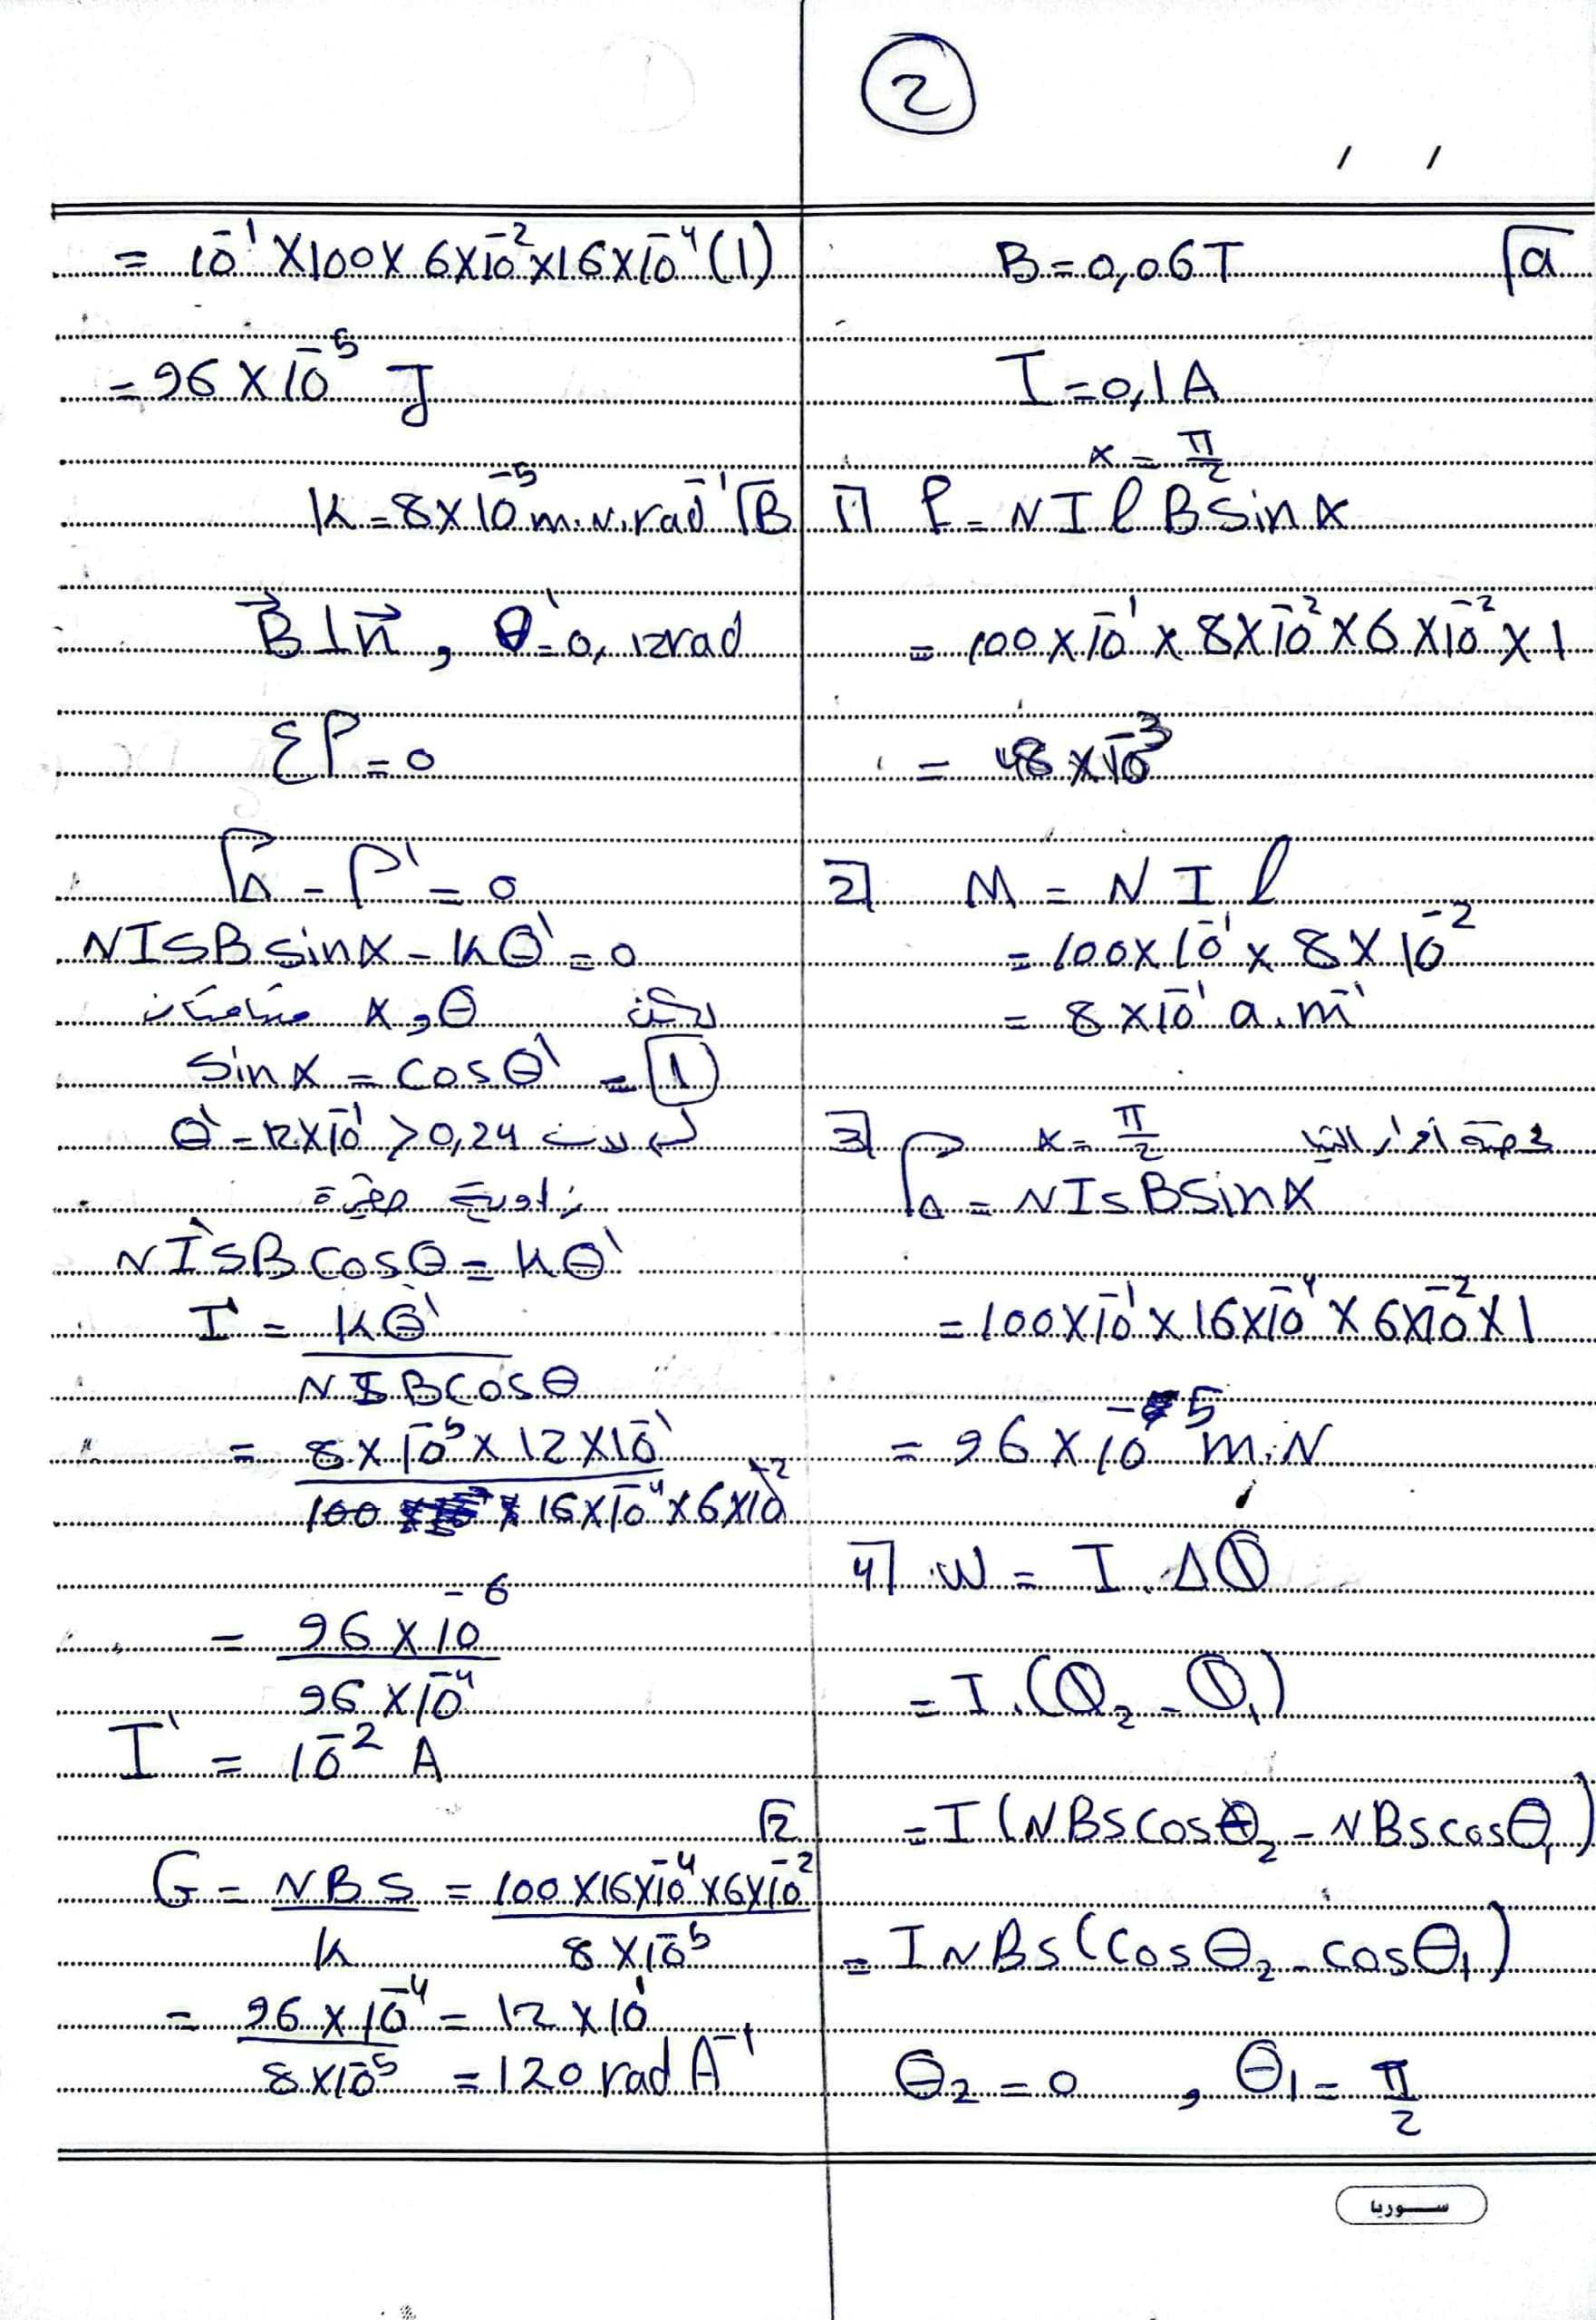 2
/ /
a
B = 0,06T
I = 0,1A
x = π/2
1] F = N I l B sin x
= 100 × 10⁻¹ × 8 × 10⁻² × 6 × 10⁻² × 1
= 48 × 10⁻³
2] M = N I l
= 100 × 10⁻¹ × 8 × 10⁻²
= 8 × 10⁻¹ a.m
3] x = π/2
Γ∆ = N I s B sin x
= 100 × 10⁻¹ × 16 × 10⁻⁴ × 6 × 10⁻² × 1
= 96 × 10⁻⁵ m.N
4] W = I . ΔΦ
= I . (Φ₂ - Φ₁)
= I (NBs cosθ₂ - NBs cosθ₁)
= I N B s (cosθ₂ - cosθ₁)
θ₂ = 0 , θ₁ = π/2
= 10⁻¹ × 100 × 6 × 10⁻² × 16 × 10⁻⁴ (1)
= 96 × 10⁻⁵ J
B
K = 8 × 10⁻⁵ m.N.rad⁻¹
B⃗ ⊥ n⃗ , θ' = 0,12rad
ΣΓ = 0
Γ∆ - Γ' = 0
N I S B sin x - Kθ' = 0
لكن x و θ متتامتان
sin x = cos θ' = 1
θ' = 12 × 10⁻¹ > 0,24
زاوية صغيرة
N I' S B cosθ = Kθ'
I' = Kθ' / N S B cosθ
= 8 × 10⁻⁵ × 12 × 10⁻¹ / 100 × 16 × 10⁻⁴ × 6 × 10⁻²
= 96 × 10⁻⁶ / 96 × 10⁻⁴
I' = 10⁻² A
2
G = N B S / K = 100 × 16 × 10⁻⁴ × 6 × 10⁻² / 8 × 10⁻⁵
= 96 × 10⁻⁴ / 8 × 10⁻⁵ = 12 × 10¹
= 120 rad A⁻¹
سوريا